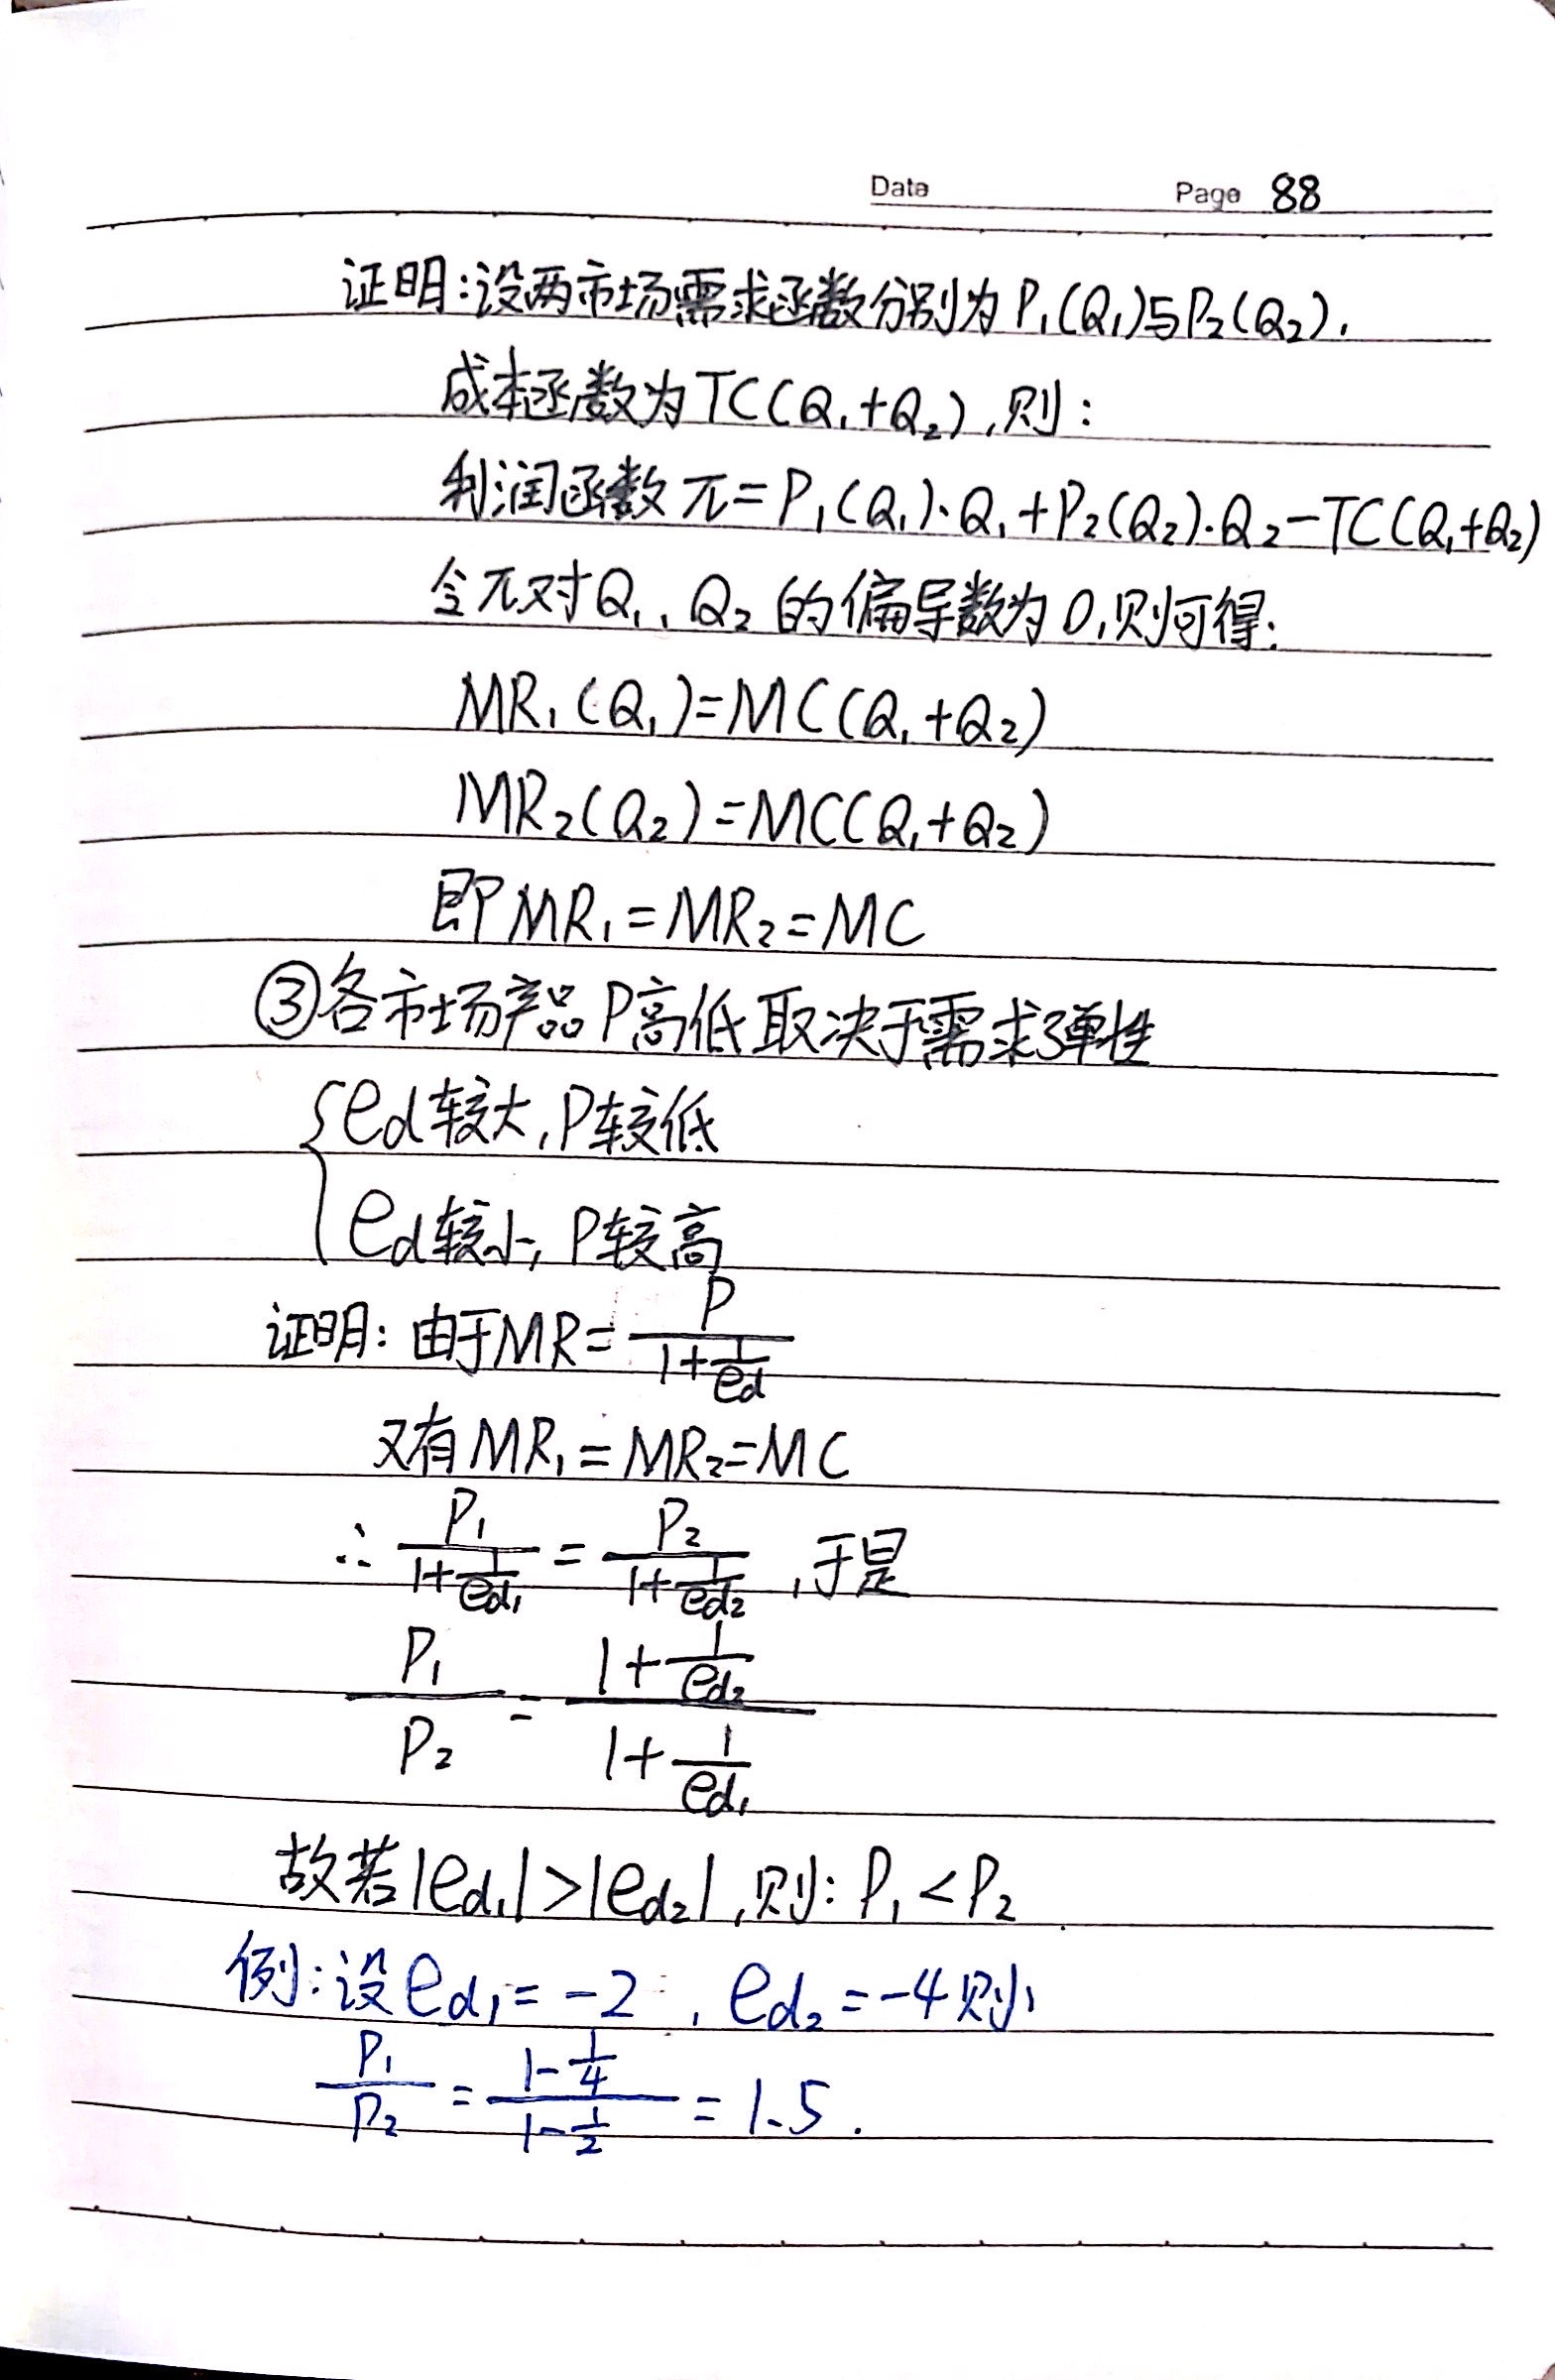 Date Page 88
证明:设两市场需求函数分别为P₁(Q₁)与P₂(Q₂),
成本函数为TC(Q₁+Q₂),则:
利润函数π=P₁(Q₁)·Q₁+P₂(Q₂)·Q₂-TC(Q₁+Q₂)
令π对Q₁、Q₂的偏导数为0,则可得:
MR₁(Q₁)=MC(Q₁+Q₂)
MR₂(Q₂)=MC(Q₁+Q₂)
即MR₁=MR₂=MC
③各市场产品P高低取决于需求弹性
{ed较大,P较低
ed较小,P较高
证明:由于MR=P/(1+1/ed)
又有MR₁=MR₂=MC
∴P₁/(1+1/ed₁)=P₂/(1+1/ed₂),于是
P₁/P₂=(1+1/ed₂)/(1+1/ed₁)
故若|ed₁|>|ed₂|,则:P₁<P₂
例:设ed₁=-2,ed₂=-4则
P₁/P₂=(1-1/4)/(1-1/2)=1.5.